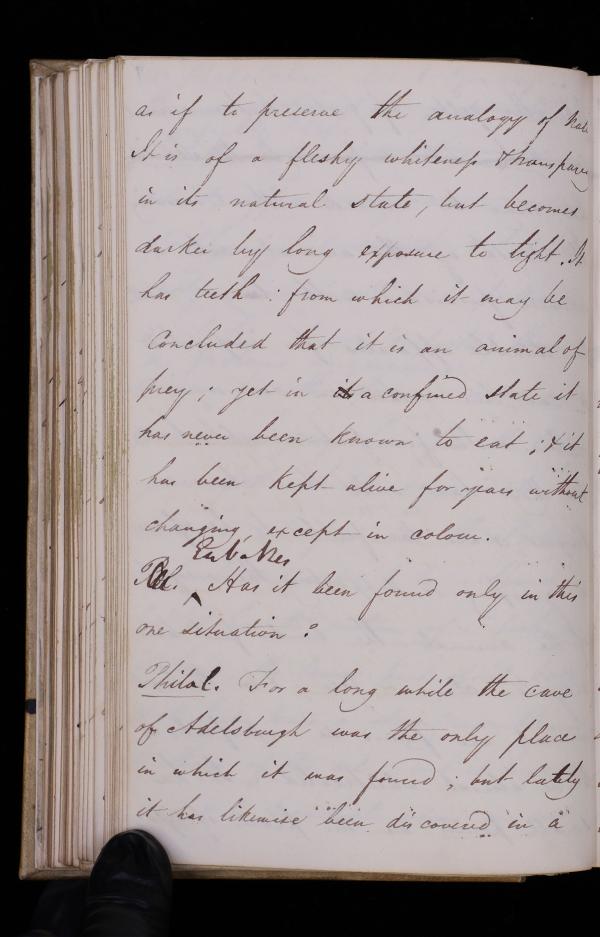 as if to preserve the analogy of
It is of a fleshy whiteness &
in its natural state, but becomes
darker by long exposure to light. It
has teeth: from which it may be
concluded that it is an animal of
prey; yet in a confined state it
has never been known to eat; & it
has been kept alive for years without
changing, except in colour.
Has it been found only in this
one situation?
Philal. For a long while the cave
of Adelsburgh was the only place
in which it was found; but lately
it has likewise been discovered in a